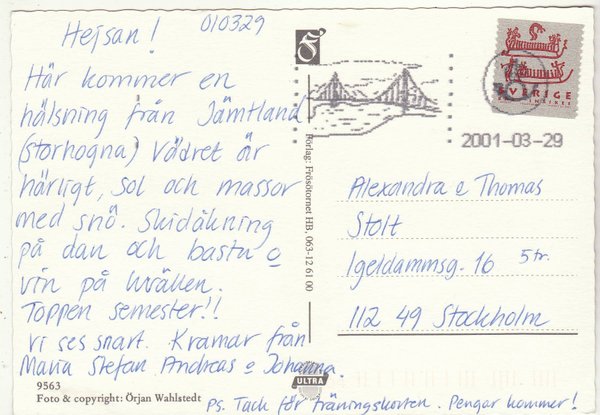 Hejsan! 010329
Här kommer en
hälsning från Jämtland
(Storhogna) Vädret är
härligt, sol och massor
med snö. Skidåkning
på dan och bastu o
vin på kvällen.
Toppen semester!!
Vi ses snart. Kramar från
Maria Stefan Andreas o Johanna.
9563
Foto & copyright: Örjan Wahlstedt
Ps. Tack för träningskorten. Pengar kommer!
Förlag: Frösötornet HB. 063-12 61 00
ULTRA
SVERIGE
2001-03-29
Alexandra o Thomas
Stolt
Igeldammsg. 16 5 tr.
112 49 Stockholm